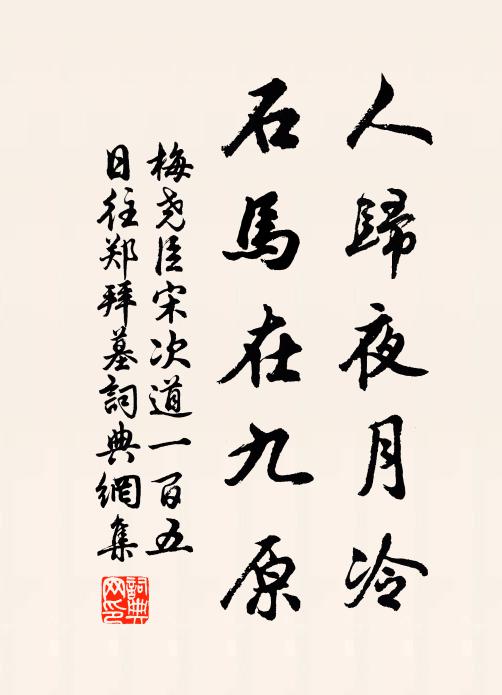 人歸夜月冷
石馬在九原
梅堯臣宋次道一百五
日往郑拜墓詞典網集
詞典
网印